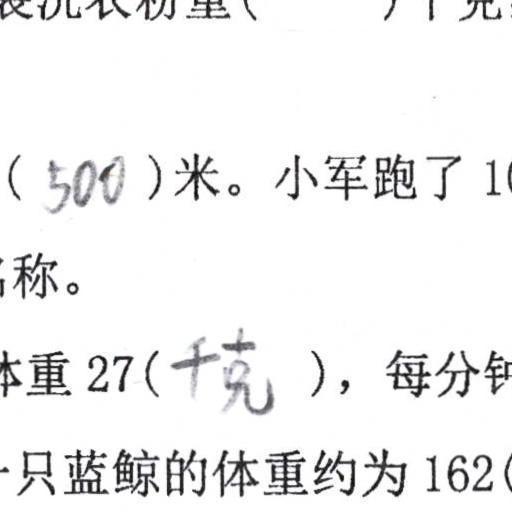 衣粉重( )千克
( 500 )米。小军跑了 10
称。
体重 27(千克 ), 每分钟
一只蓝鲸的体重约为 162(